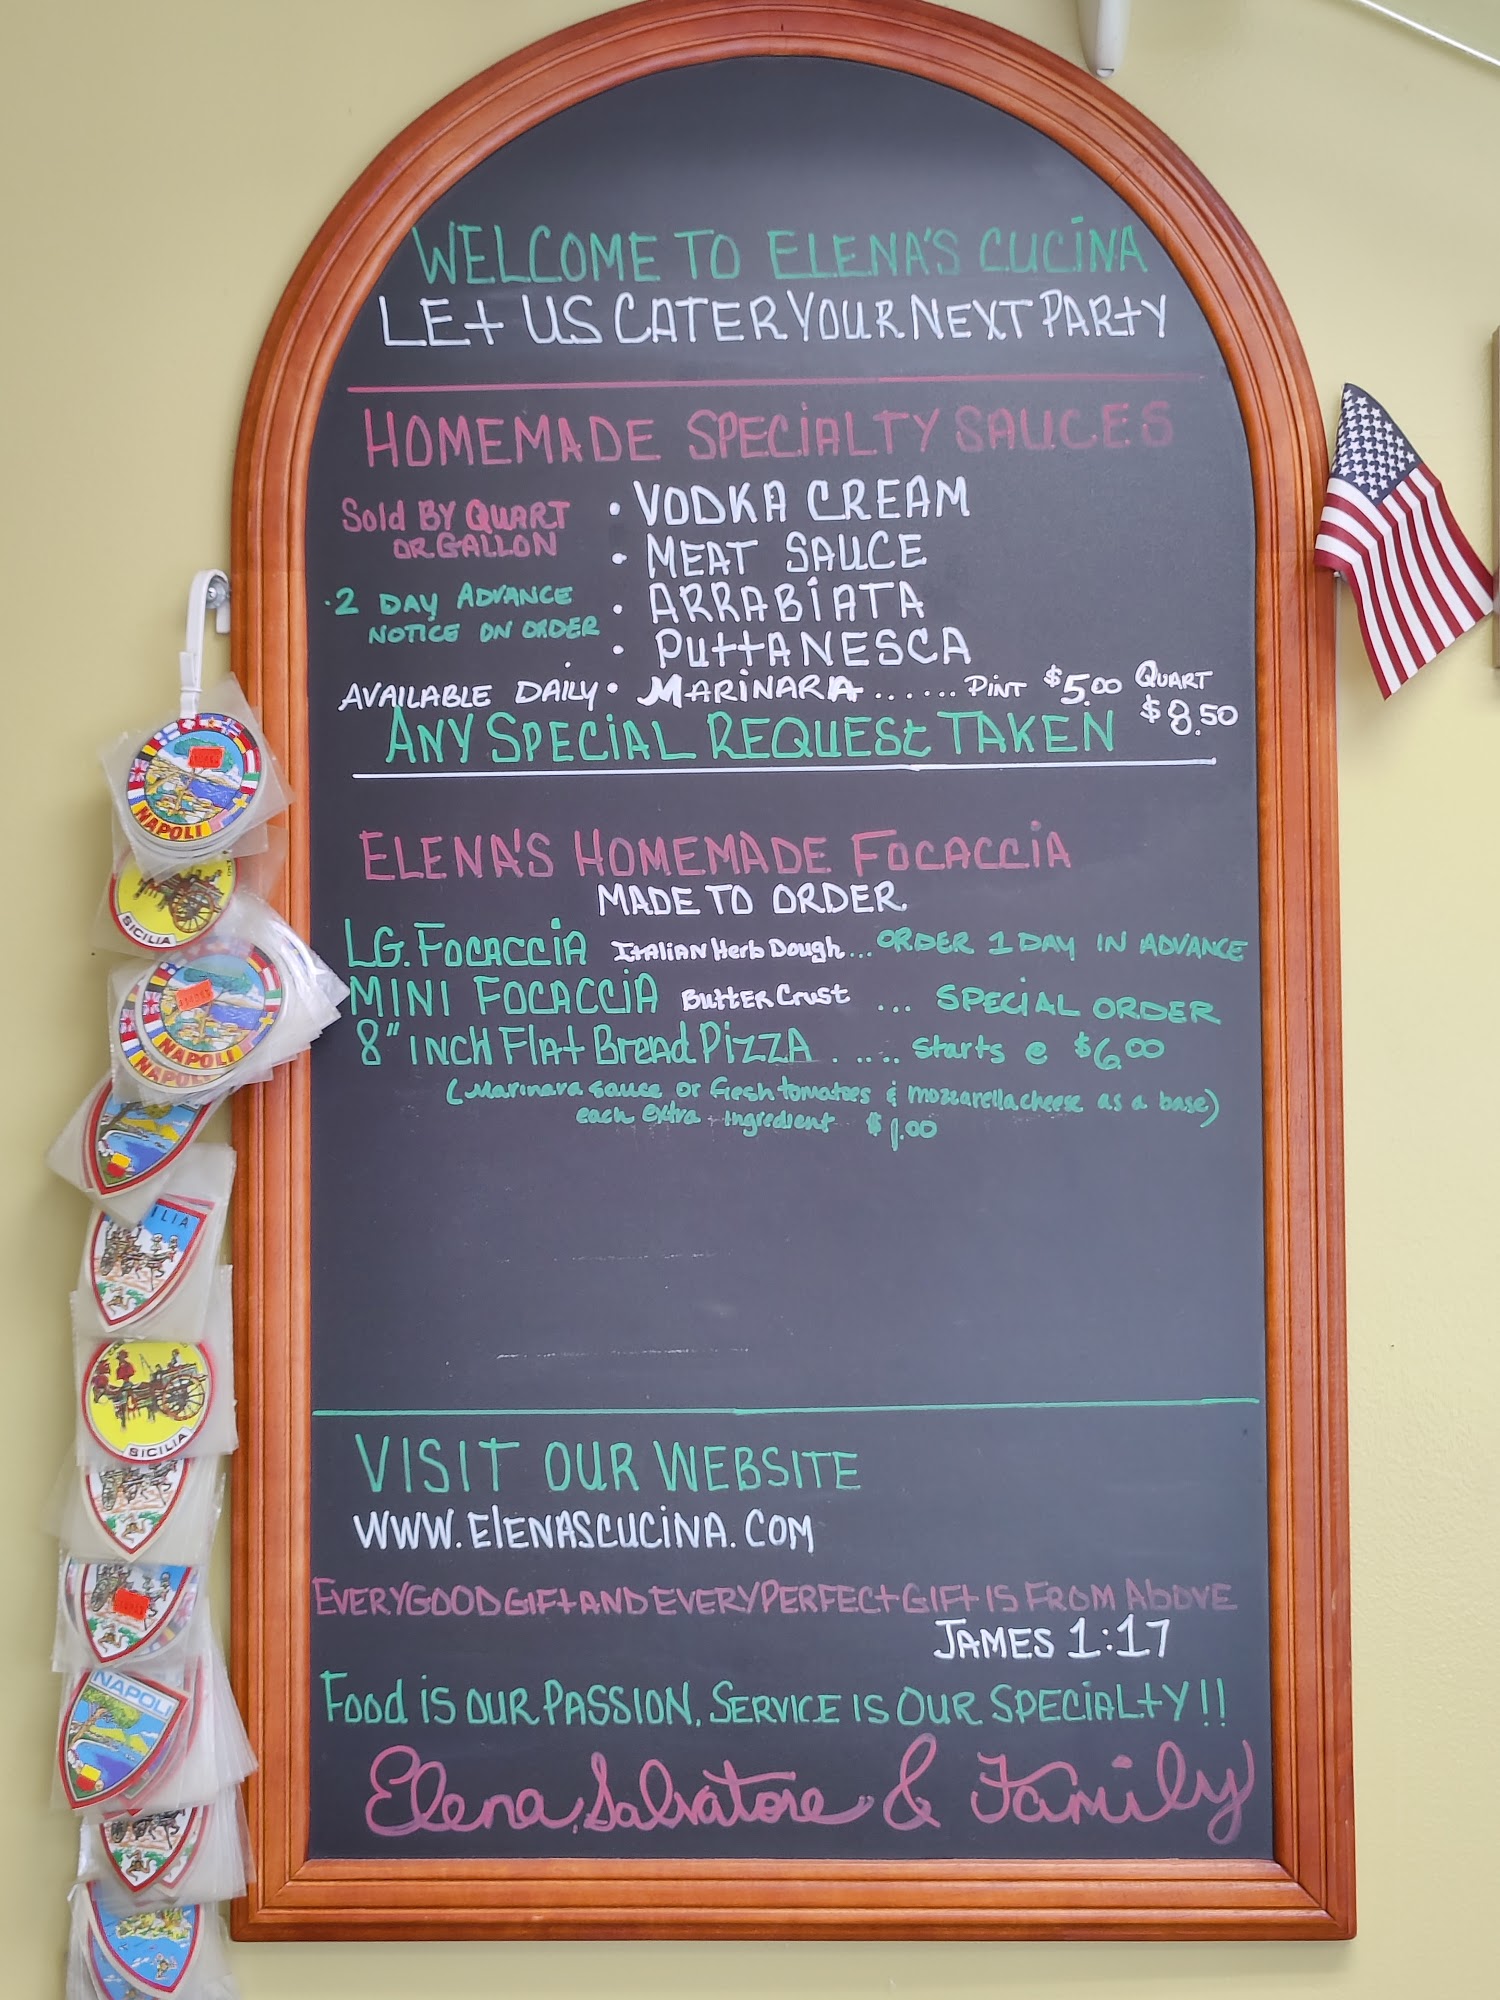 WELCOME TO ELENA'S CUCINA
LET US CATER YOUR NEXT PARTY
HOMEMADE SPECIALTY SAUCES
Sold BY QUART
OR GALLON
• VODKA CREAM
• MEAT SAUCE
· 2 DAY ADVANCE
NOTICE ON ORDER
• ARRABIATA
• PUTTANESCA
AVAILABLE DAILY • MARINARA ...... PINT $5.00 QUART
$8.50
ANY SPECIAL REQUEST TAKEN
ELENA'S HOMEMADE FOCACCIA
MADE TO ORDER
LG. FOCACCIA Italian Herb Dough... ORDER 1 DAY IN ADVANCE
MINI FOCACCIA Butter Crust ... SPECIAL ORDER
8" INCH Flat Bread Pizza ..... Starts @ $6.00
(Marinara sauce or fresh tomatoes & mozzarella cheese as a base)
each extra ingredient $1.00
VISIT OUR WEBSITE
WWW.ELENASCUCINA.COM
EVERY GOOD GIFT AND EVERY PERFECT GIFT IS FROM ABOVE
JAMES 1:17
Food is OUR PASSION, SERVICE IS OUR SPECIALTY!!
Elena, Salvatore & Family
NAPOLI
SICILIA
NAPOLI
NAPOLI
ILIA
SICILIA
NAPOLI